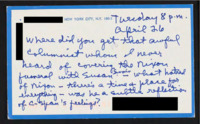 NEW YORK CITY, N.Y.
Tuesday 8 p.m.
April 26
Where did you get that awful
Columnist whom I never
heard of covering the Nixon
funeral with Susan what hatred
of Nixon - there's a time & place for
everything - was he a subtle reflection
of C-Span's feelings?